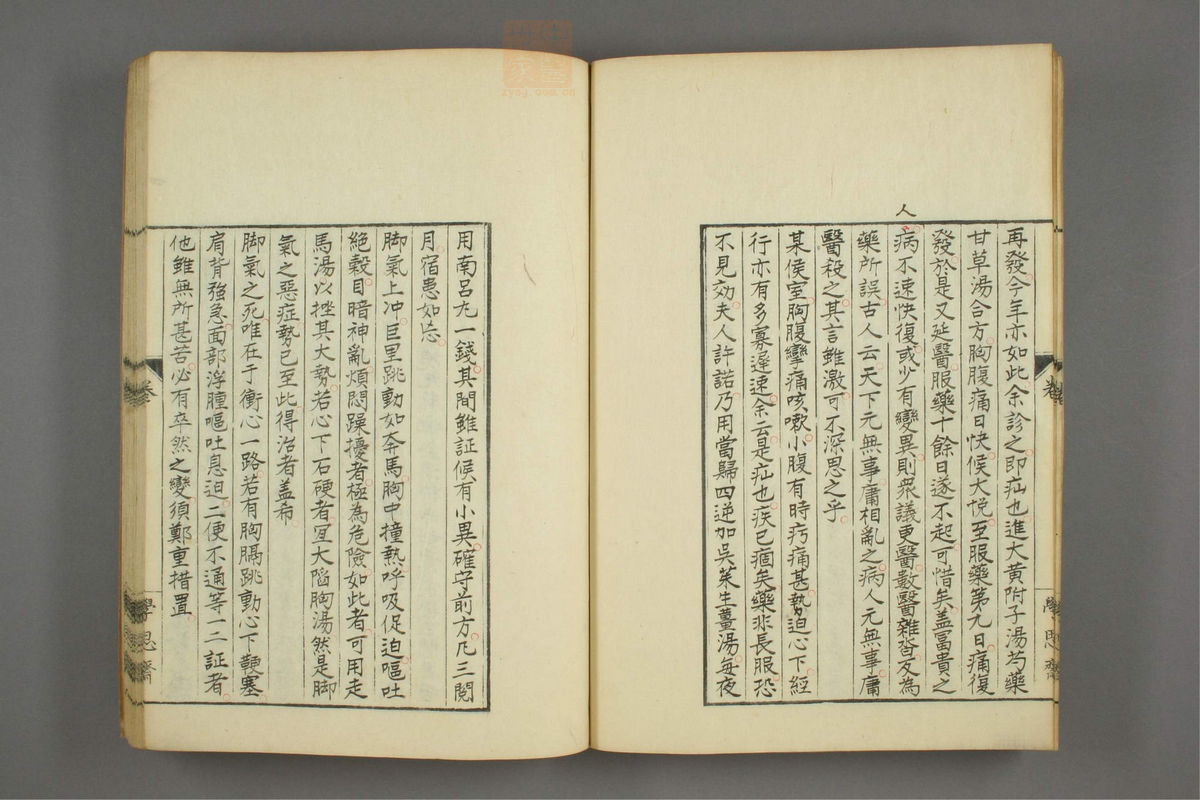 再發今年亦如此余診之即疝也進大黃附子湯芍藥
甘草湯合方胸腹痛日快侯大悅至服藥第九日痛復
發於是又延醫服藥十餘日遂不起可惜矣蓋冨貴之
人
病不速快復或少有變異則衆議更醫數醫雜沓反為
藥所誤古人云天下元無事庸相亂之病人元無事庸
醫殺之其言雖激可不深思之乎
某侯室胸腹攣痛咳嗽小腹有時疞痛甚勢迫心下經
行亦有多寡遲速余云是疝也疾已痼矣藥非長服恐
不見効夫人許諾乃用當歸四逆加吳茱生薑湯每夜
卷
學思齋
用南呂丸一錢其間雖証候有小異確守前方凡三閱
月宿患如忘
脚氣上冲巨里跳動如奔馬胸中撞熱呼吸促迫嘔吐
絕穀目暗神亂煩悶躁擾者極為危險如此者可用走
馬湯以挫其大勢若心下石硬者宜大陷胸湯然是脚
氣之惡症勢已至此得治者蓋希
脚氣之死唯在于衝心一路若有胸膈跳動心下鞕塞
肩背強急面部浮腫嘔吐息迫二便不通等一二証者
他雖無所甚苦必有卒然之變須鄭重措置
卷
學思齋
zycj.com.cn